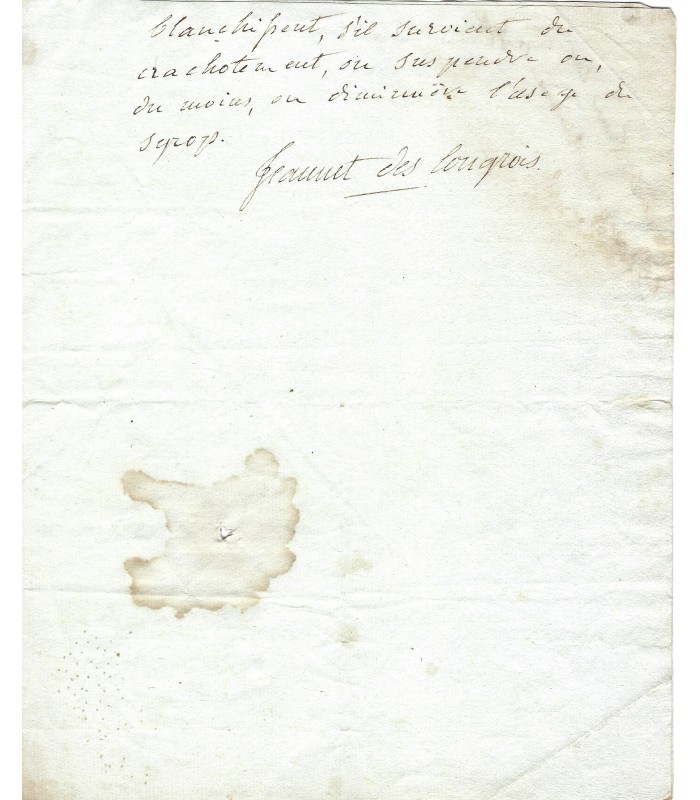 blanchissent, s'il survient du
crachotement, on suspendra ou,
du moins, on diminuëra l'usage du
syrop.
Jeannet des Longrois.